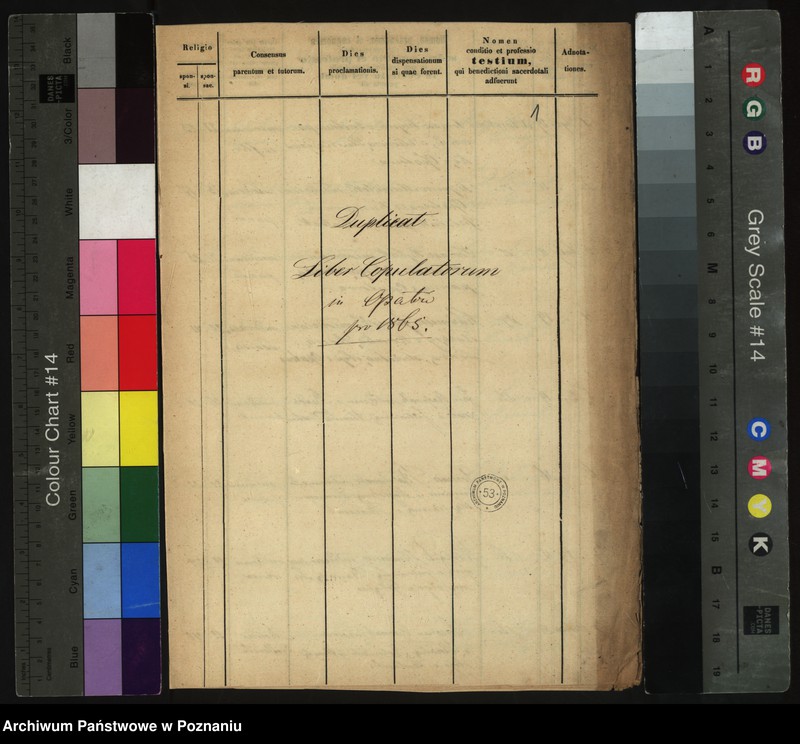 Religio
spon-
si.
spon-
sae.
Consensus
parentum et tutorum.
Dies
proclamationis.
Dies
dispensationum
si quae forent.
Nomen
conditio et professio
testium,
qui benedictioni sacerdotali
adfuerunt
Adnota-
tiones.
1
Duplicat
Liber Copulatorum
in
pro 1865.
53
Colour Chart #14
Black
3/Color
White
Magenta
Red
Yellow
Green
Cyan
Blue
DANES
-PICTA
Inches
Centimetres
Grey Scale #14
R
G
B
C
M
Y
K
A
1
2
3
4
5
6
M
8
9
10
11
12
13
14
15
B
17
18
19
DANES
-PICTA
.COM
Archiwum Państwowe w Poznaniu